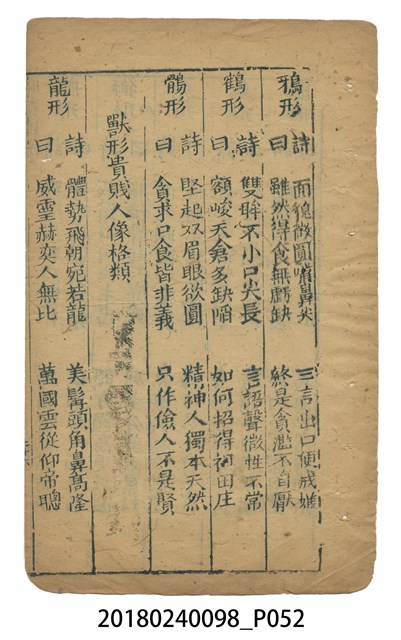 鴉形 詩曰 面貌微圓嘴鼻尖 三言出口便戒嫌
雖然得食無虧缺 終是貪濫不自厭
鶴形 詩曰 雙眸不小口尖長 言語聲微性不常
額峻天倉多缺陷 如何招得祖田庄
鶻形 詩曰 堅起双眉眼欲圓 精神人獨本天然
貪求口食皆非義 只作儉人不是賢
獸形貴賤人像格類
龍形 詩曰 體勢飛朝宛若龍 美髯頭角鼻高隆
威靈赫奕人無比 萬國雲從仰帝聰
20180240098_P052